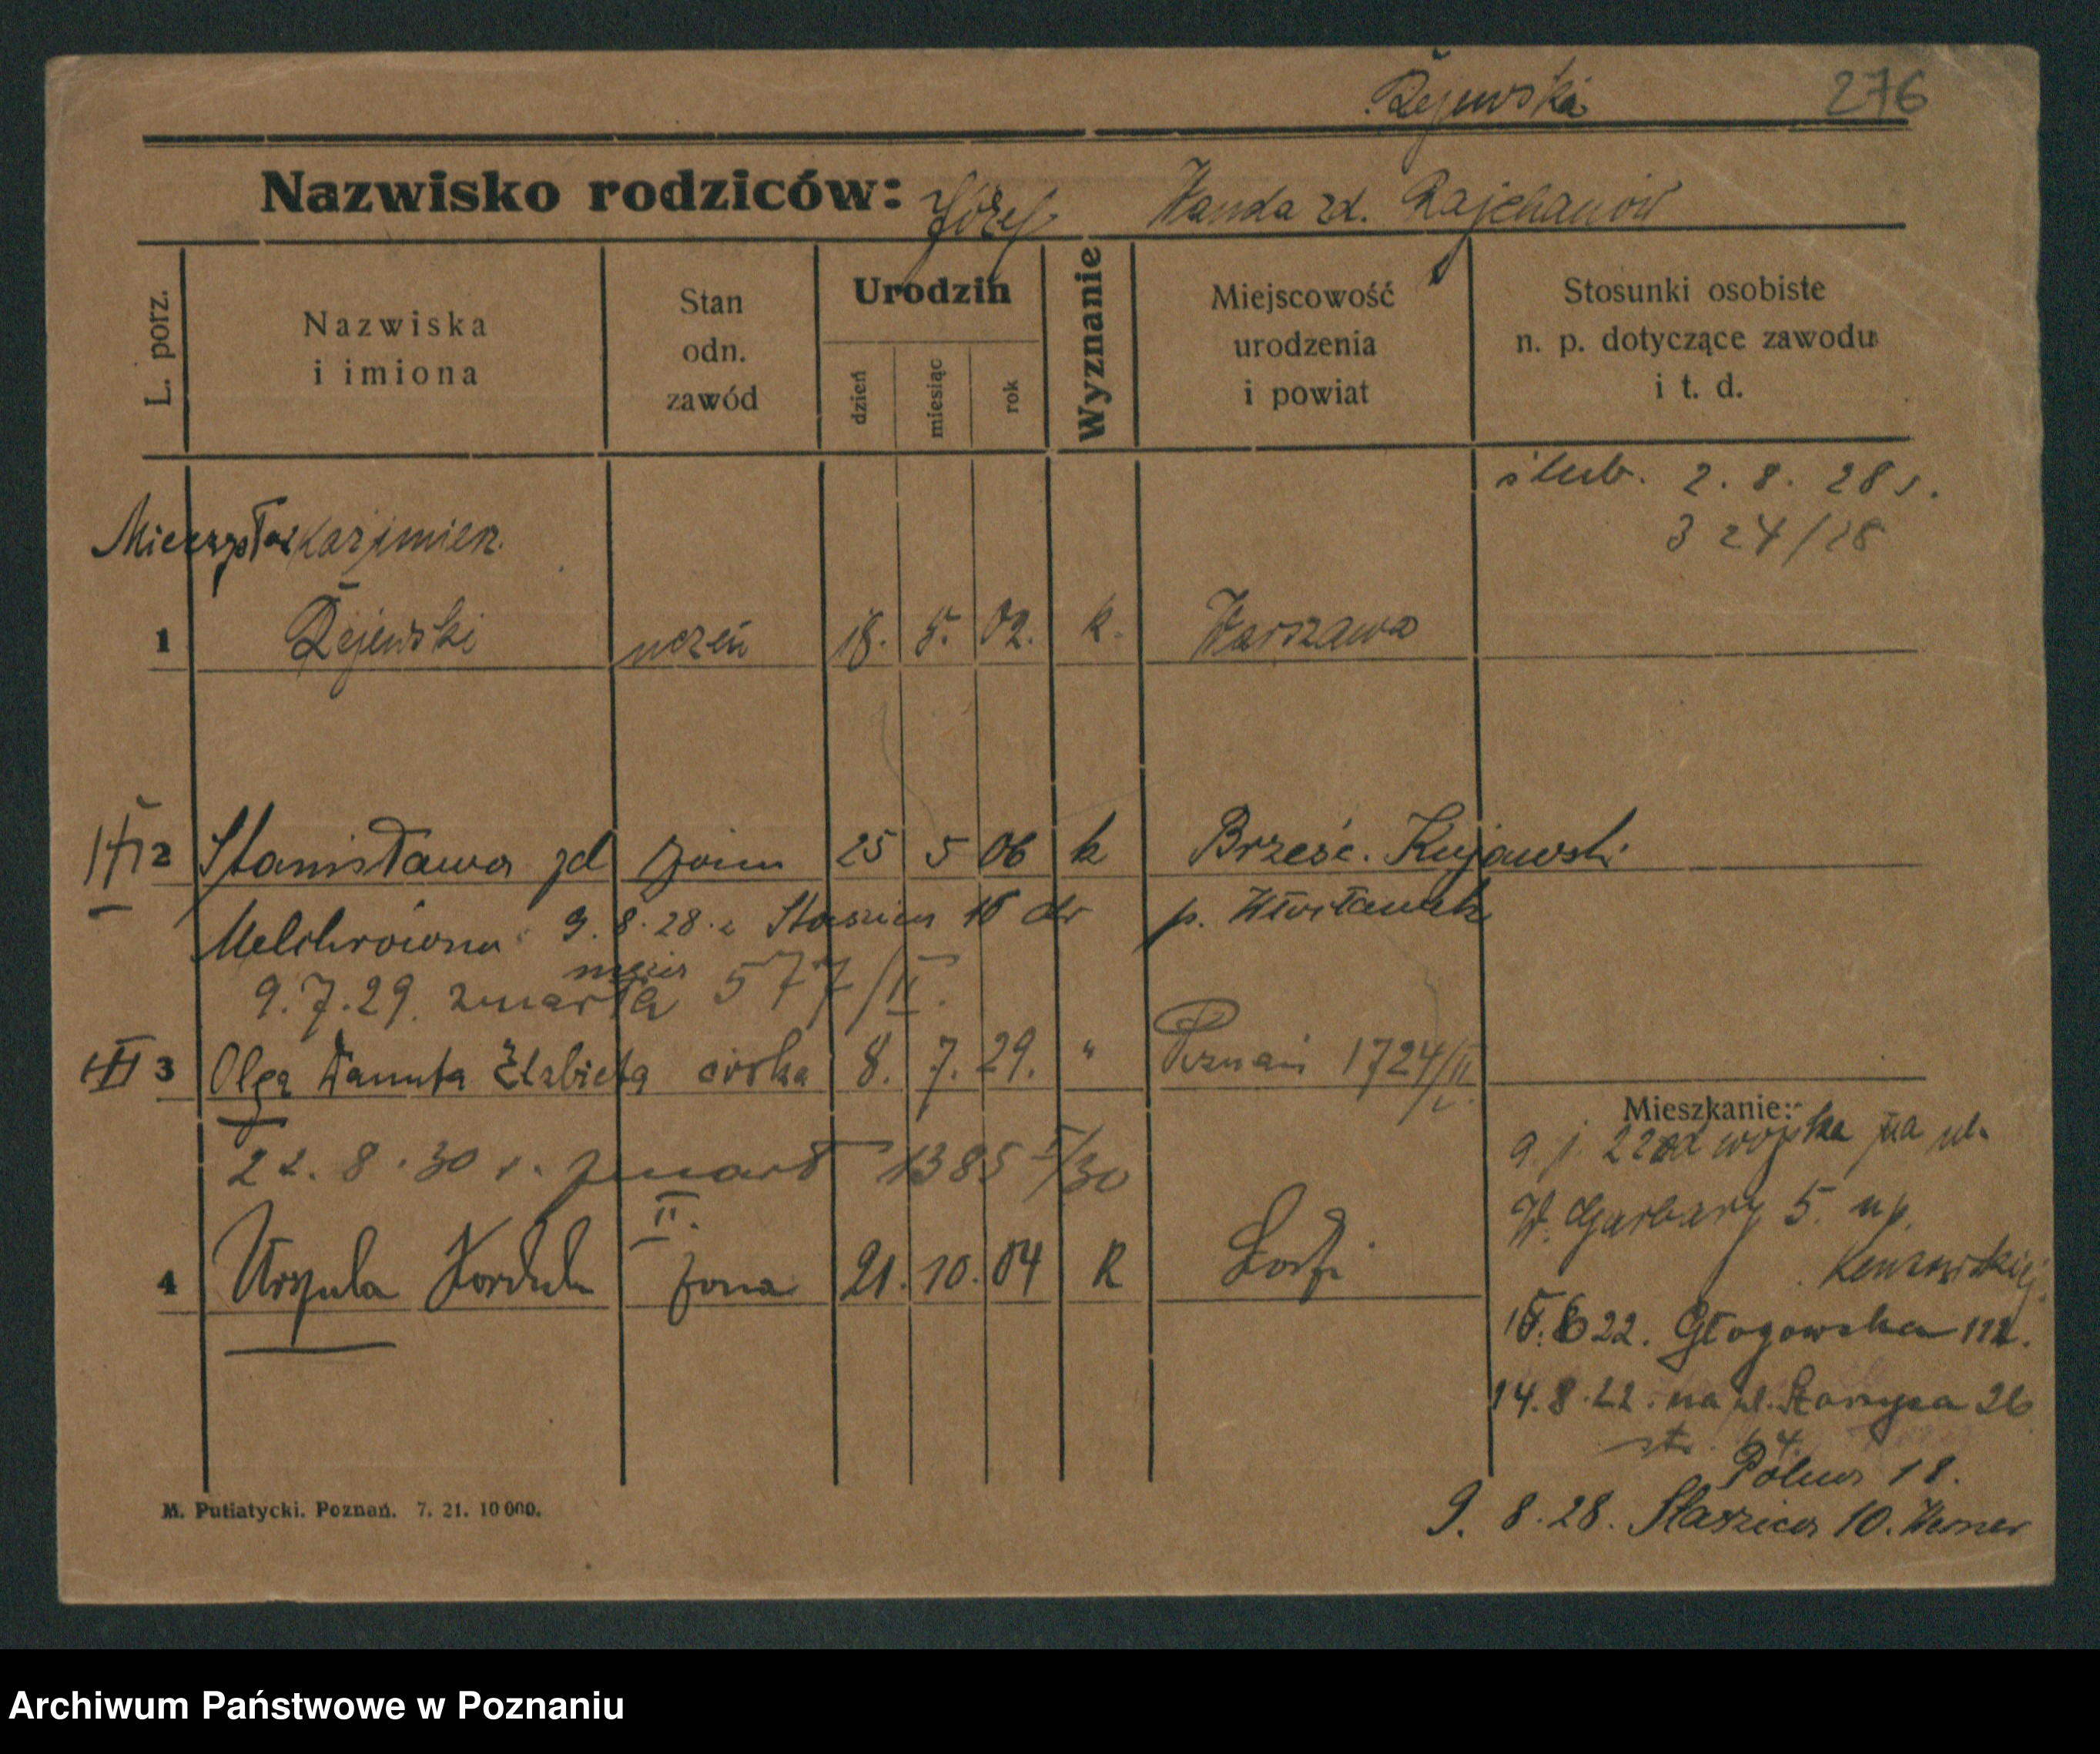 Rżejewski
276
Nazwisko rodziców: Józef Wanda zd.
L. porz.
Nazwiska
i imiona
Stan
odn.
zawód
Urodzin
dzień
miesiąc
rok
Wyznanie
Miejscowość
urodzenia
i powiat
Stosunki osobiste
n. p. dotyczące zawodu
i t. d.
ślub. 2. 8. 28 r.
324/28
Mieczysław Kazimierz
1 uczeń 18. 5. 02. k. Warszawa
2 Stanisława zd żona 25 5 06 k Brześć. Kujawski
Melchrówna 9. 8. 28. z Staszica 16 p. Włocławek
9. 7. 29. zmarła 577/II.
3 Olga Danuta Elżbieta córka 8. 7. 29. " Poznań 1724/II
22. 8. 30 r. zmarł 1385 I/30
II.
4 Urszula żona 21. 10. 04 k Łódź
Mieszkanie:
9. 22 od wojska na ul.
W. Garbary 5.
15. 6 22. Głogowska 111.
14. 8. 22. na ul. 26
Polna 18.
9. 8. 28. Staszica 10. Werner
M. Putiatycki. Poznań. 7. 21. 10 000.
Archiwum Państwowe w Poznaniu